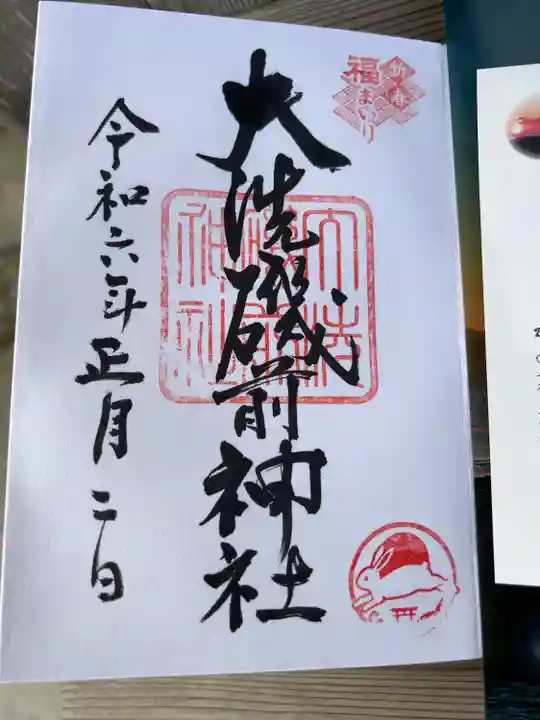 新春
福まいり
大洗磯前神社
大洗
磯前
神社
令和六年正月二日